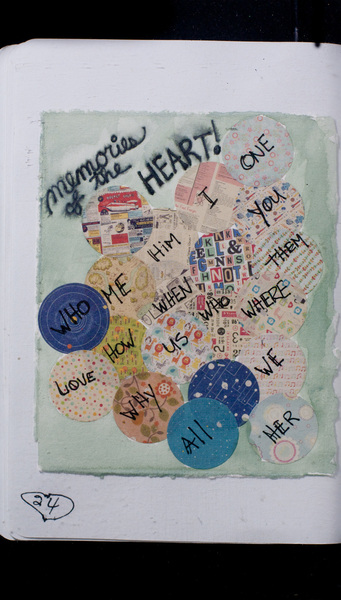 memories
of the
HEART!
ONE
I
YOU
HiM
THEM
ME
WHEN
WHO
WHERE
WHO
HOW
US
WE
LOVE
WHY
All
HER
24